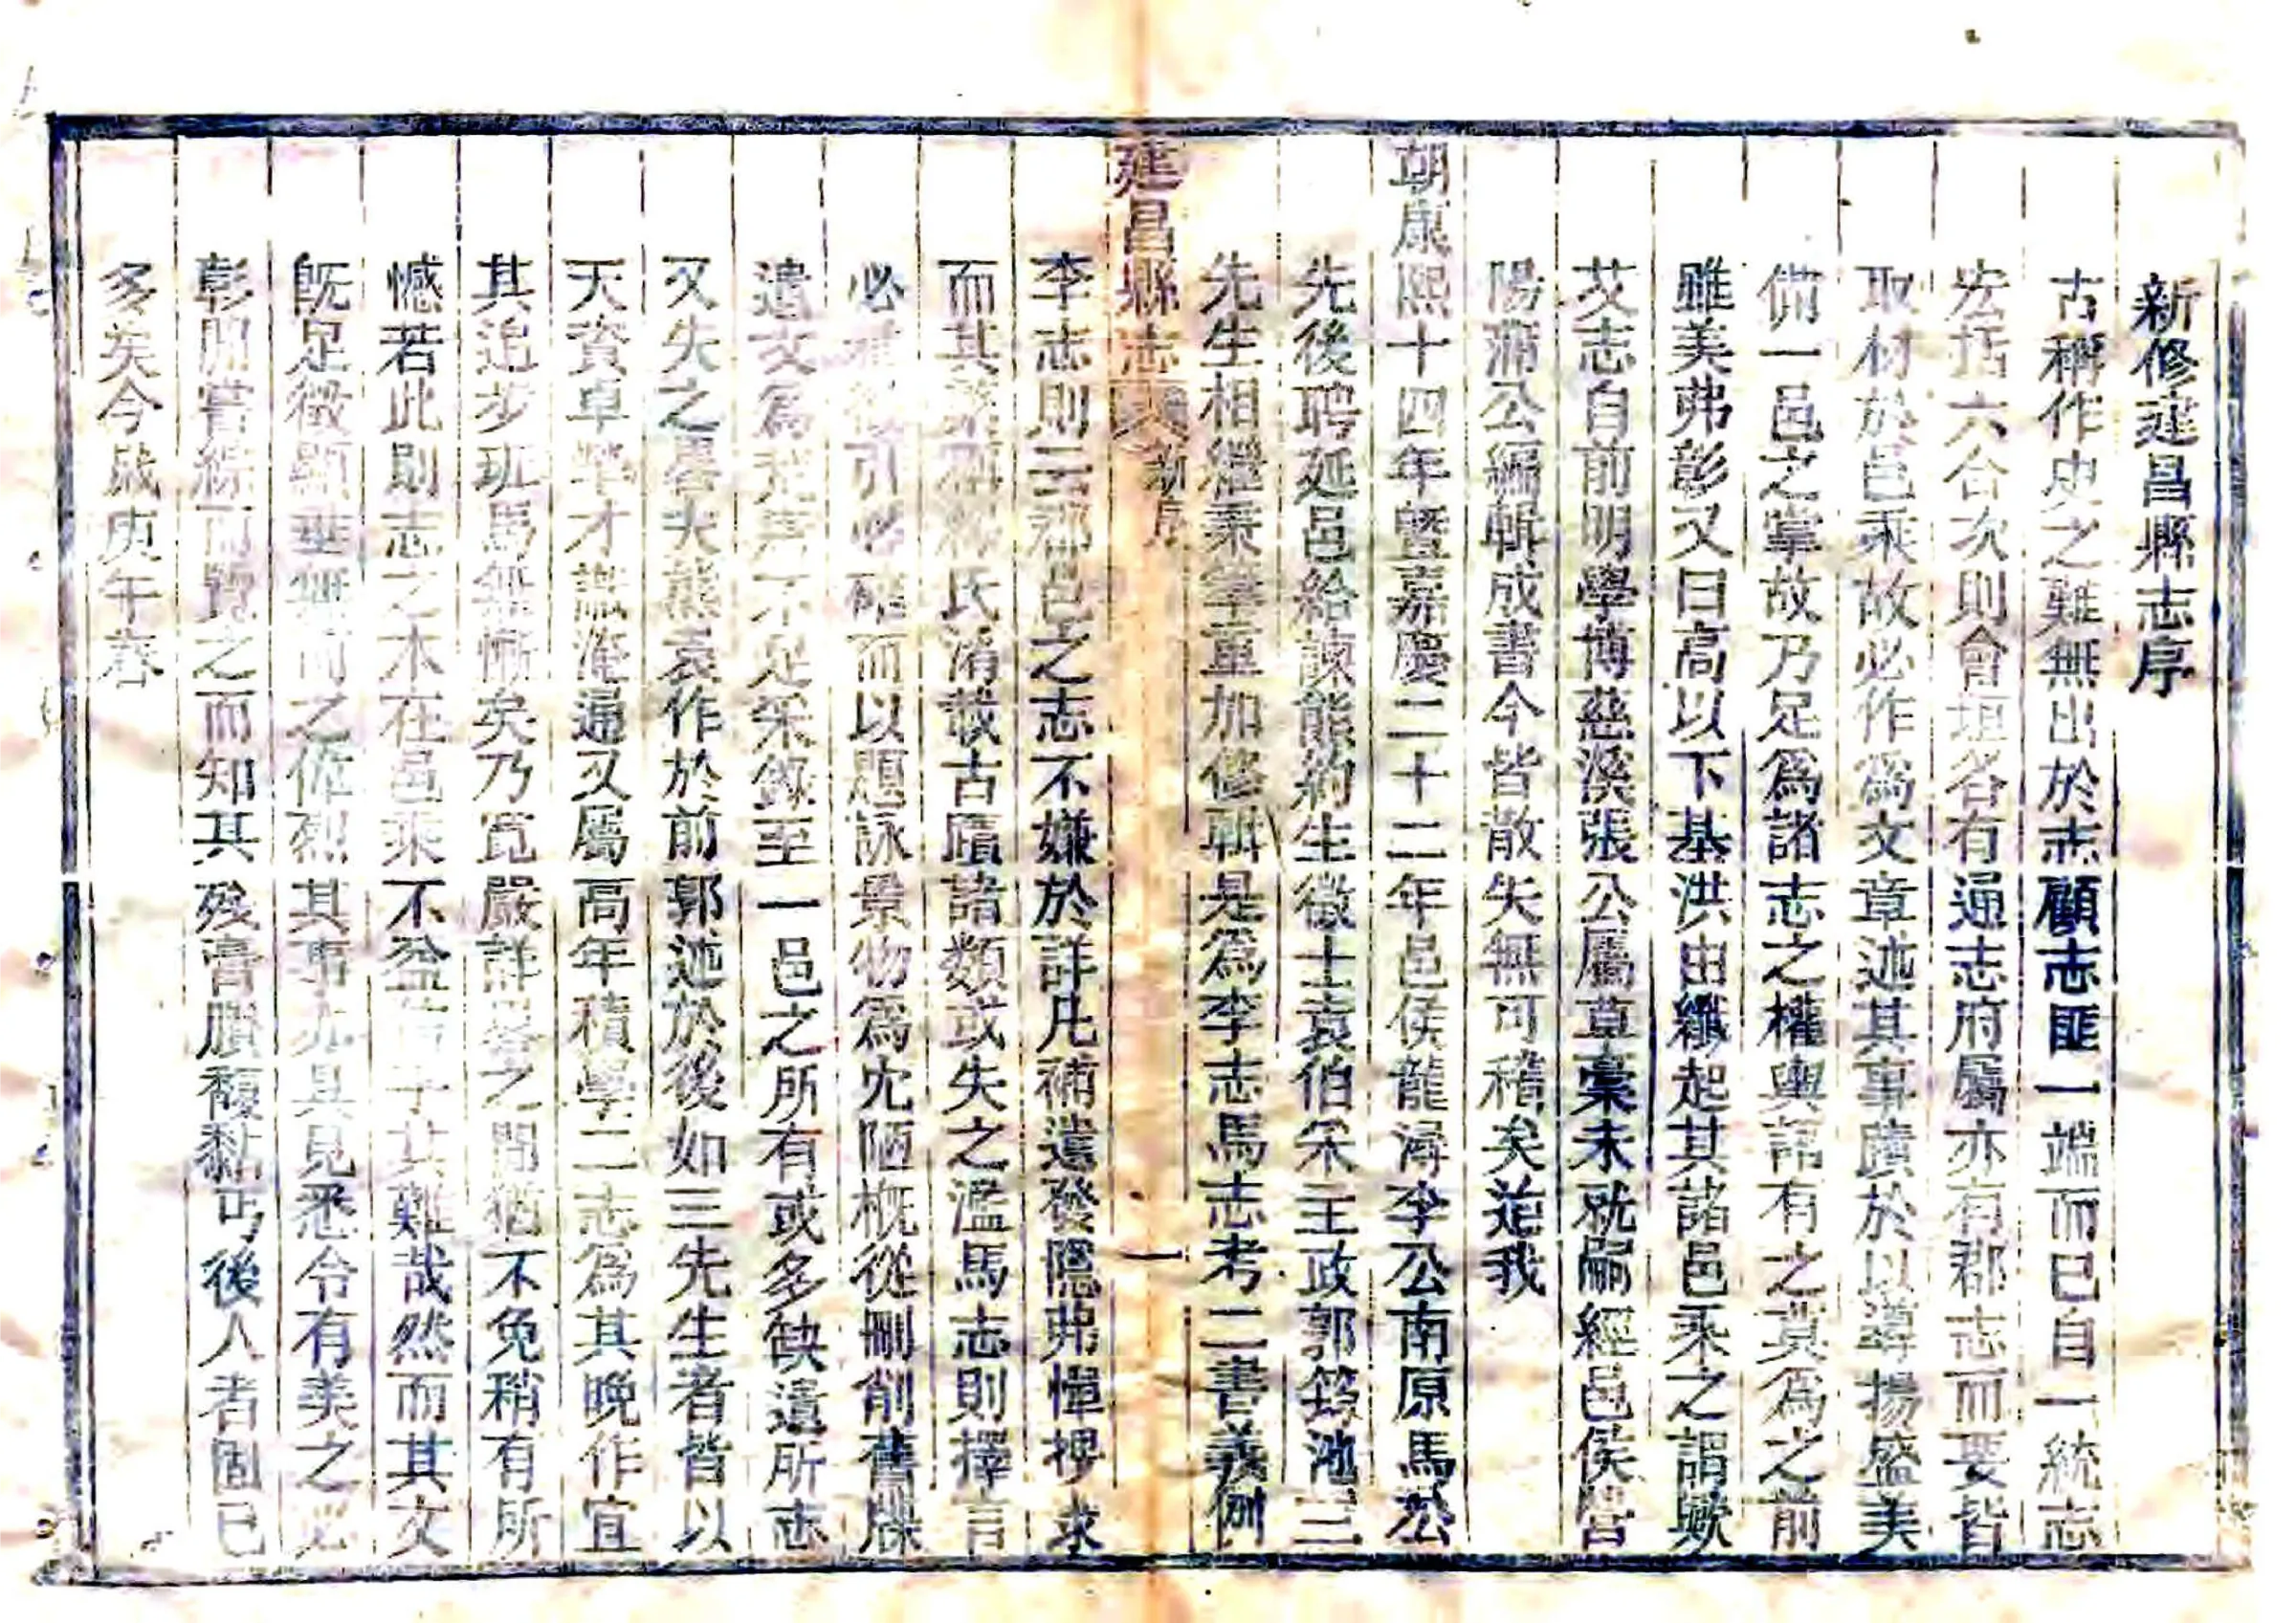 新修建昌縣志序
古稱作史之難無出於志顧志匪一端而已自一統志
宏括六合次則會垣各有通志府屬亦有郡志而要皆
取材於邑乘故必作為文章述其事蹟於以導揚盛美
備一邑之掌故乃足為諸志之權輿詎有之莫為之前
雖美弗彰又曰高以下基洪由纖起其諸邑乘之謂歟
艾志自前明學博慈溪張公屬草稾未就嗣經邑侯營
陽蒲公編輯成書今皆散失無可稽矣逮我
朝康熙十四年曁嘉慶二十二年邑侯龍潯李公南原馬公
先後聘延邑給諫熊約生徵士袁伯朱王政郭筠池三
先生相繼秉筆重加修輯是為李志馬志考二書義例
延昌縣志 新序 一
李志則云郡邑之志不嫌於詳凡補遺發隱弗憚摉求
而其 氏淆載古蹟諸類或失之濫馬志則擇言
必 引必確而以題詠景物為尤陋概從刪削舊牒
遺文為荒 不足采錄至一邑之所有或多缺遺所志
又失之畧夫熊袁作於前郭述於後如三先生者皆以
天資卓犖才識淹通又屬高年積學二志為其晚作宜
其追步班馬無慚矣乃寬嚴詳畧之間猶不免稍有所
憾若此則志之不在邑乘不益 乎其難哉然而其文
旣足徵顯垂無前之偉烈其事亦具見悉令有美之必
彰間嘗綜而覽之而知其殘膏賸馥黏丐後人者固已
多矣今歲庚午春